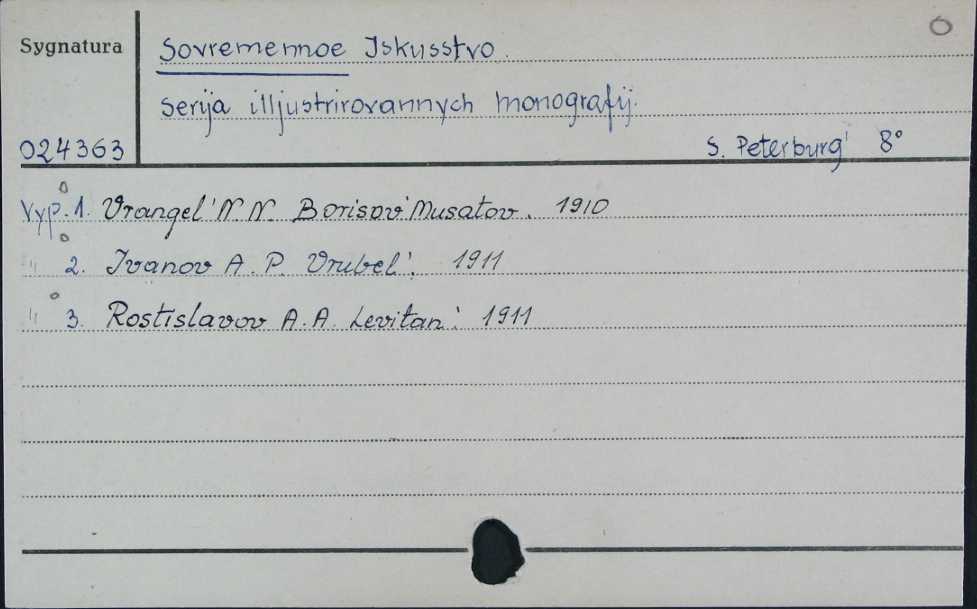 Sygnatura
Sovremennoe Iskusstvo.
Serija illjustrirovannych monografij.
024363
S. Peterburg' 8°
Vyp. 1. Vrangel' N N. Borisov' Musatov. 1910
" 2. Ivanov A. P. Vrubel'. 1911
" 3. Rostislavov A. A. Levitan'. 1911